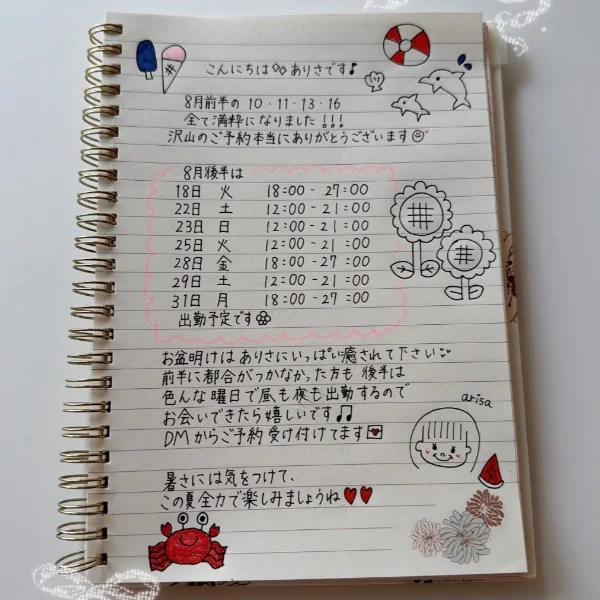 こんにちは ありさです♪
8月前半の 10・11・13・16
全て満粋になりました!!!
沢山のご予約本当にありがとうございます
8月後半は
18日 火 18:00 - 27:00
22日 土 12:00 - 21:00
23日 日 12:00 - 21:00
25日 火 12:00 - 21:00
28日 金 18:00 - 27:00
29日 土 12:00 - 21:00
31日 月 18:00 - 27:00
出勤予定です
お盆明けは ありさにいっぱい癒されて下さい
前半に都合がつかなかった方も 後半は
色んな曜日で昼も夜も出勤するので
お会いできたら嬉しいです♫
DMからご予約受け付けてます
arisa
暑さには気をつけて、
この夏全力で楽しみましょうね♥♥